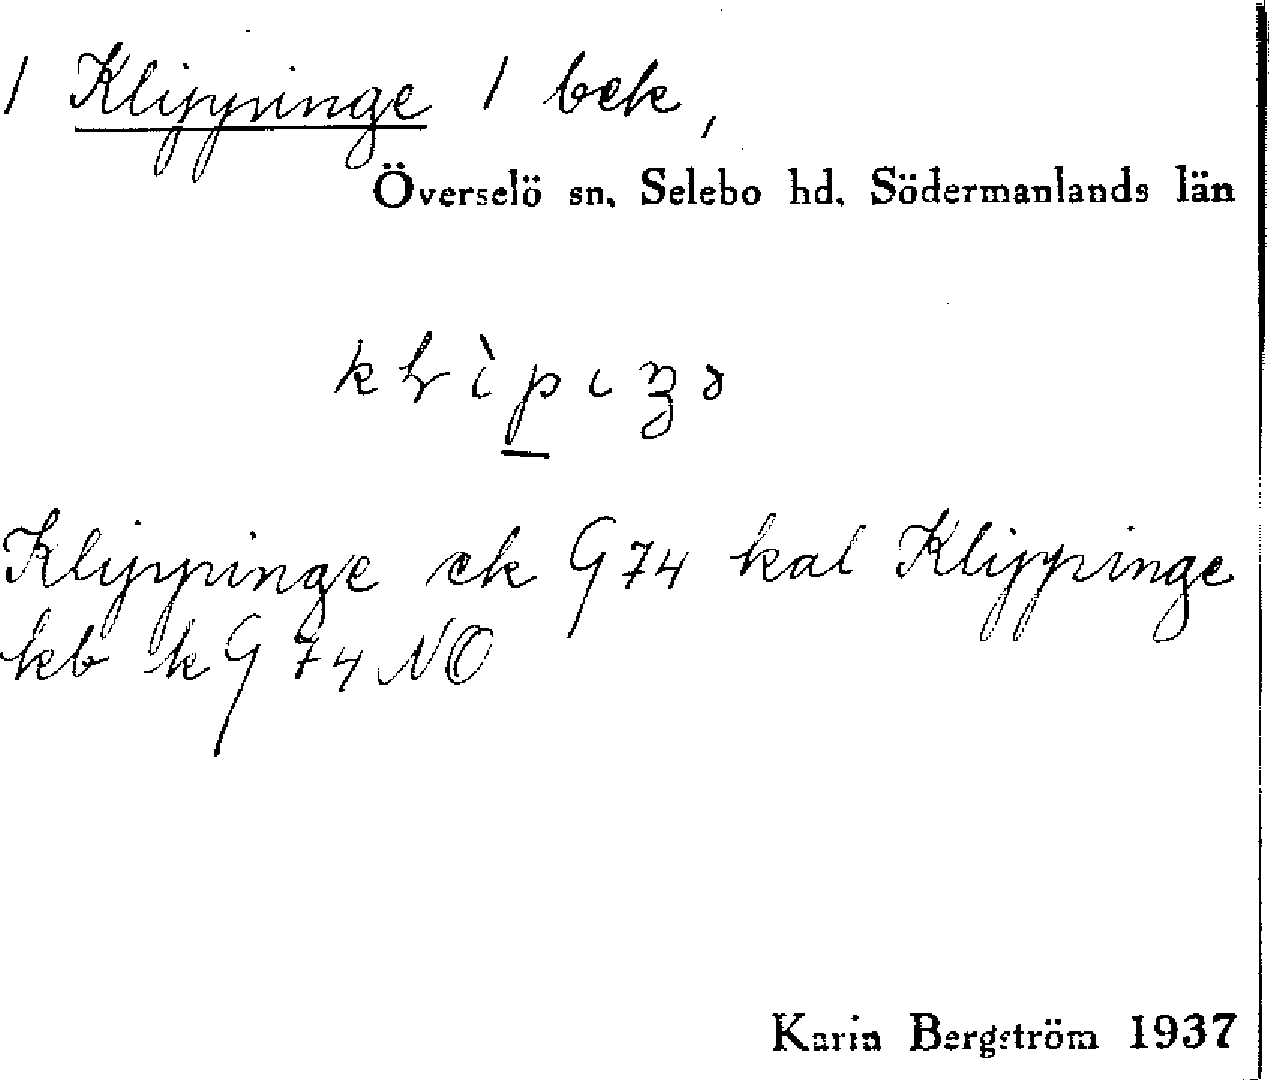 / Klippinge / bek,
Överselö sn. Selebo hd. Södermanlands län
Klippinge ek G 74 kal Klippinge
kb k G 74 NO
Karin Bergström 1937